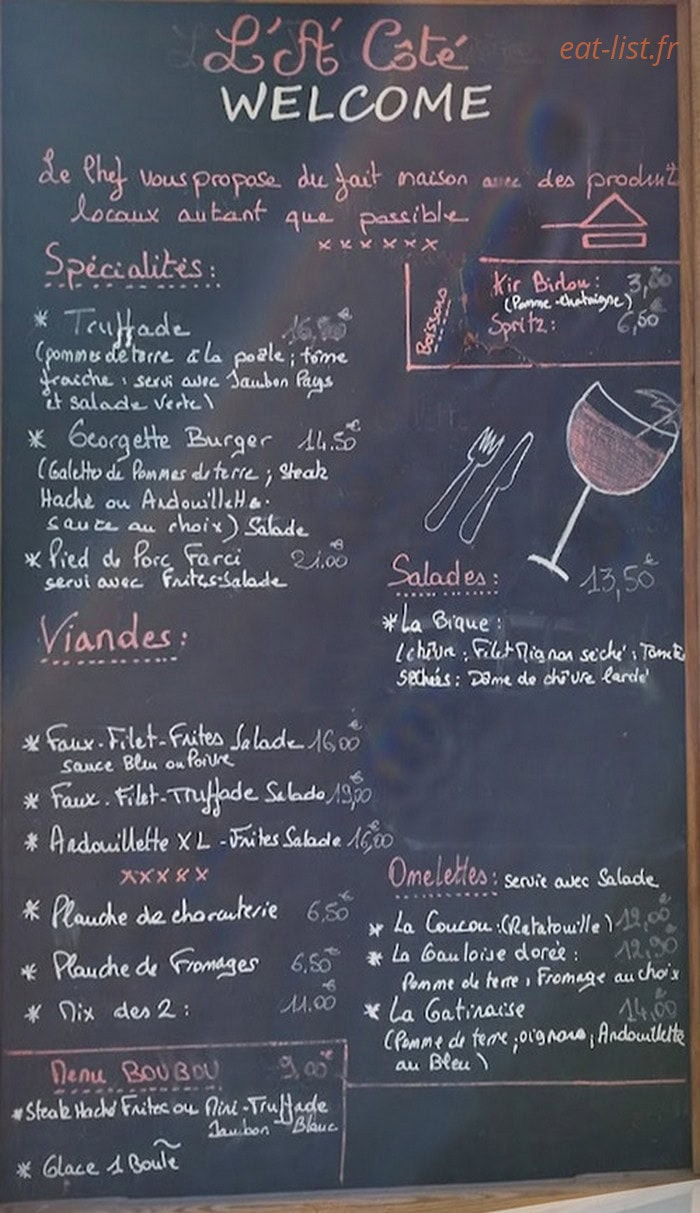 L'A' Côté
eat-list.fr
WELCOME
Le Chef vous propose du fait maison avec des produit
locaux autant que possible
xxxxxx
Spécialités:
* Truffade
(pommes de terre à la poële; tôme
fraiche: servi avec Jambon Pays
et salade verte)
* Georgette Burger 14.50€
(Galette de Pommes de terre; Steak
Haché ou Andouillette.
sauce au choix) Salade
* Pied de Porc Farci 21.00€
servi avec Frites-Salade
Boissons
Kir Birlou: 3,00
(Pomme-chataigne)
Spritz: 6,50€
Salades: 13,50€
* La Bique:
(chèvre; Filet Mignon séché; Tomate
séchées: Dôme de chèvre lardé
Viandes:
* Faux-Filet-Frites Salade 16,00€
sauce Bleu ou Poivre
* Faux-Filet-Truffade Salade 19,00€
* Andouillette XL - Frites Salade 16,00€
xxxxx
* Planche de charcuterie 6.50€
* Planche de Fromages 6.50€
* Mix des 2: 11.00€
Omelettes: servie avec Salade
* La Coucou: (Ratatouille) 12,00€
* La Gauloise dorée: 12,90€
Pomme de terre, Fromage au choix
* La Gatinaise 14,00€
(Pomme de terre; oignons; Andouillette
au Bleu)
Menu BOUBOU 9,00€
* Steak Haché Frites ou Mini-Truffade
Jambon Blanc
* Glace 1 Boule